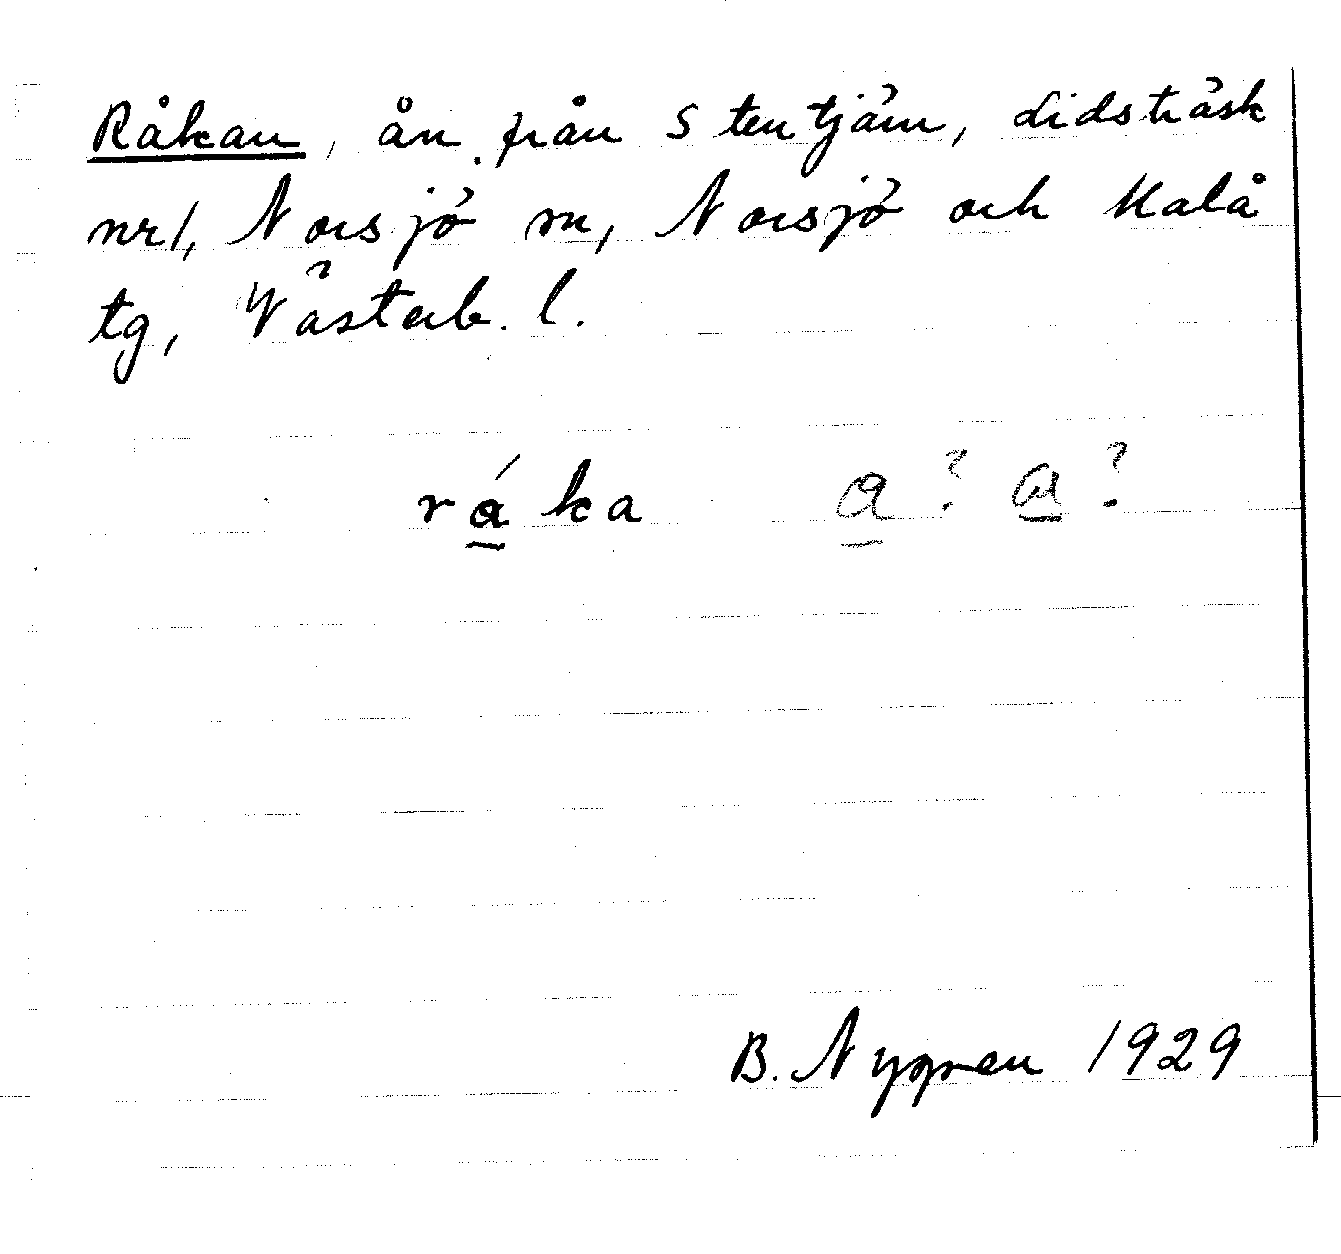 Råkan, ån från Stentjärn, Lidsträsk
nr 1, Norsjö sn, Norsjö och Malå
tg, Västerb. l.
rá̱ka a̱? a̱?
B. Nygren 1929